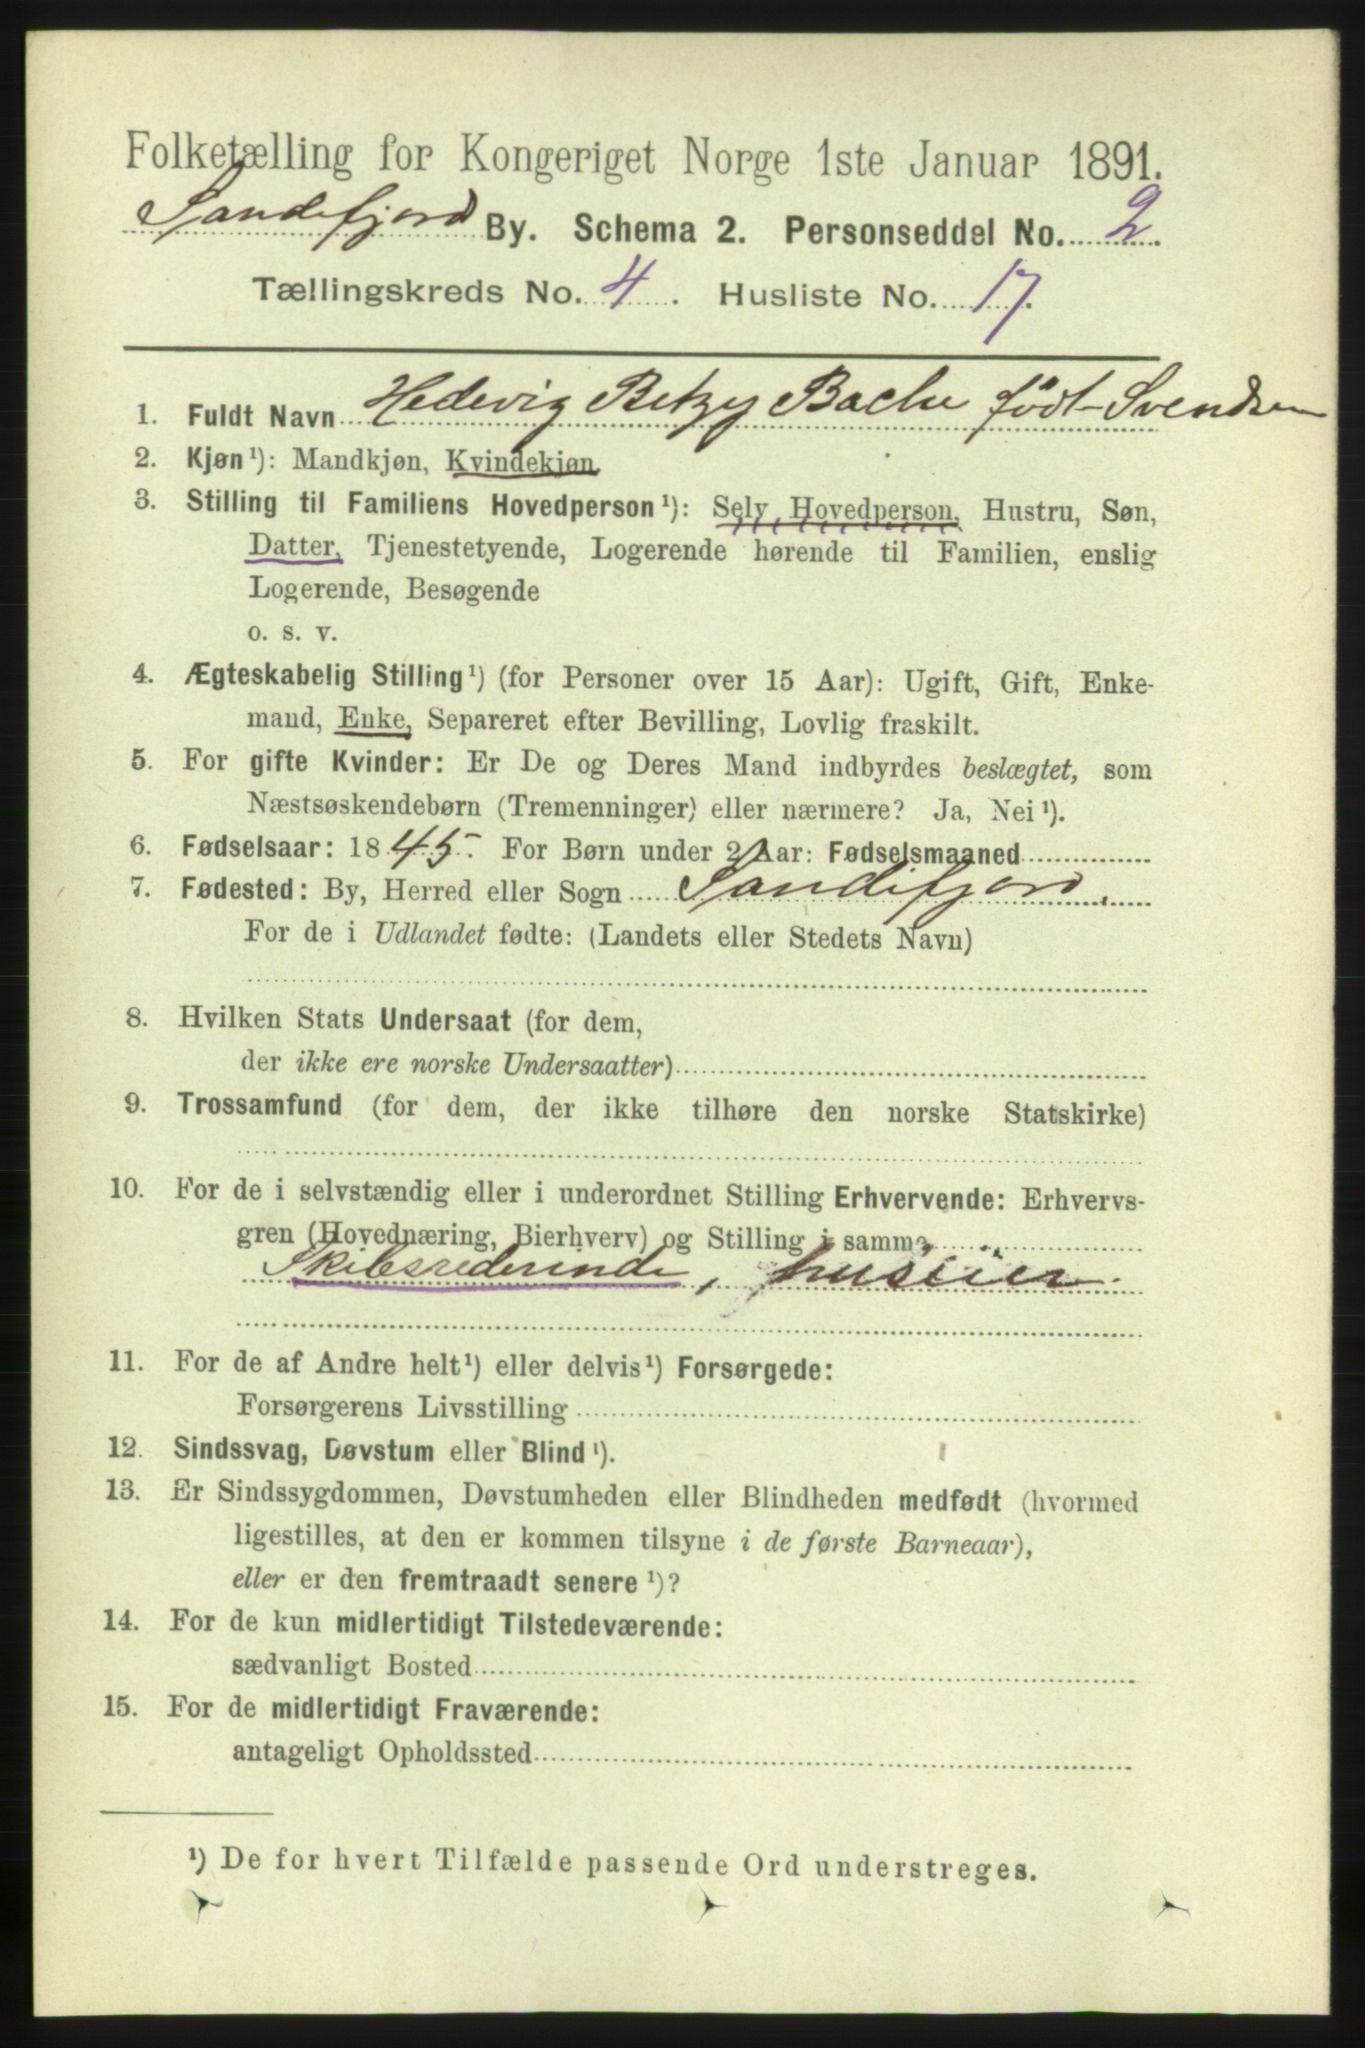 Folketælling for Kongeriget Norge 1ste Januar 1891.
Sandefjord By. Schema 2. Personseddel No. 2.
Tællingskreds No. 4. Husliste No. 17.
1. Fuldt Navn Hedevig Betzy Bache født Svendsen
2. Kjøn ¹): Mandkjøn, Kvindekjøn
3. Stilling til Familiens Hovedperson ¹): Selv Hovedperson, Hustru, Søn,
Datter, Tjenestetyende, Logerende hørende til Familien, enslig
Logerende, Besøgende
o. s. v.
4. Ægteskabelig Stilling ¹) (for Personer over 15 Aar): Ugift, Gift, Enke-
mand, Enke, Separeret efter Bevilling, Lovlig fraskilt.
5. For gifte Kvinder: Er De og Deres Mand indbyrdes beslægtet, som
Næstsøskendebørn (Tremenninger) eller nærmere? Ja, Nei ¹).
6. Fødselsaar: 1845. For Børn under 2 Aar: Fødselsmaaned
7. Fødested: By, Herred eller Sogn Sandefjord.
For de i Udlandet fødte: (Landets eller Stedets Navn)
8. Hvilken Stats Undersaat (for dem,
der ikke ere norske Undersaatter)
9. Trossamfund (for dem, der ikke tilhøre den norske Statskirke)
10. For de i selvstændig eller i underordnet Stilling Erhvervende: Erhvervs-
gren (Hovednæring, Bierhverv) og Stilling i samme
Skibsrederinde, huseier.
11. For de af Andre helt ¹) eller delvis ¹) Forsørgede:
Forsørgerens Livsstilling
12. Sindssvag, Døvstum eller Blind ¹).
13. Er Sindssygdommen, Døvstumheden eller Blindheden medfødt (hvormed
ligestilles, at den er kommen tilsyne i de første Barneaar),
eller er den fremtraadt senere ¹)?
14. For de kun midlertidigt Tilstedeværende:
sædvanligt Bosted
15. For de midlertidigt Fraværende:
antageligt Opholdssted
¹) De for hvert Tilfælde passende Ord understreges.